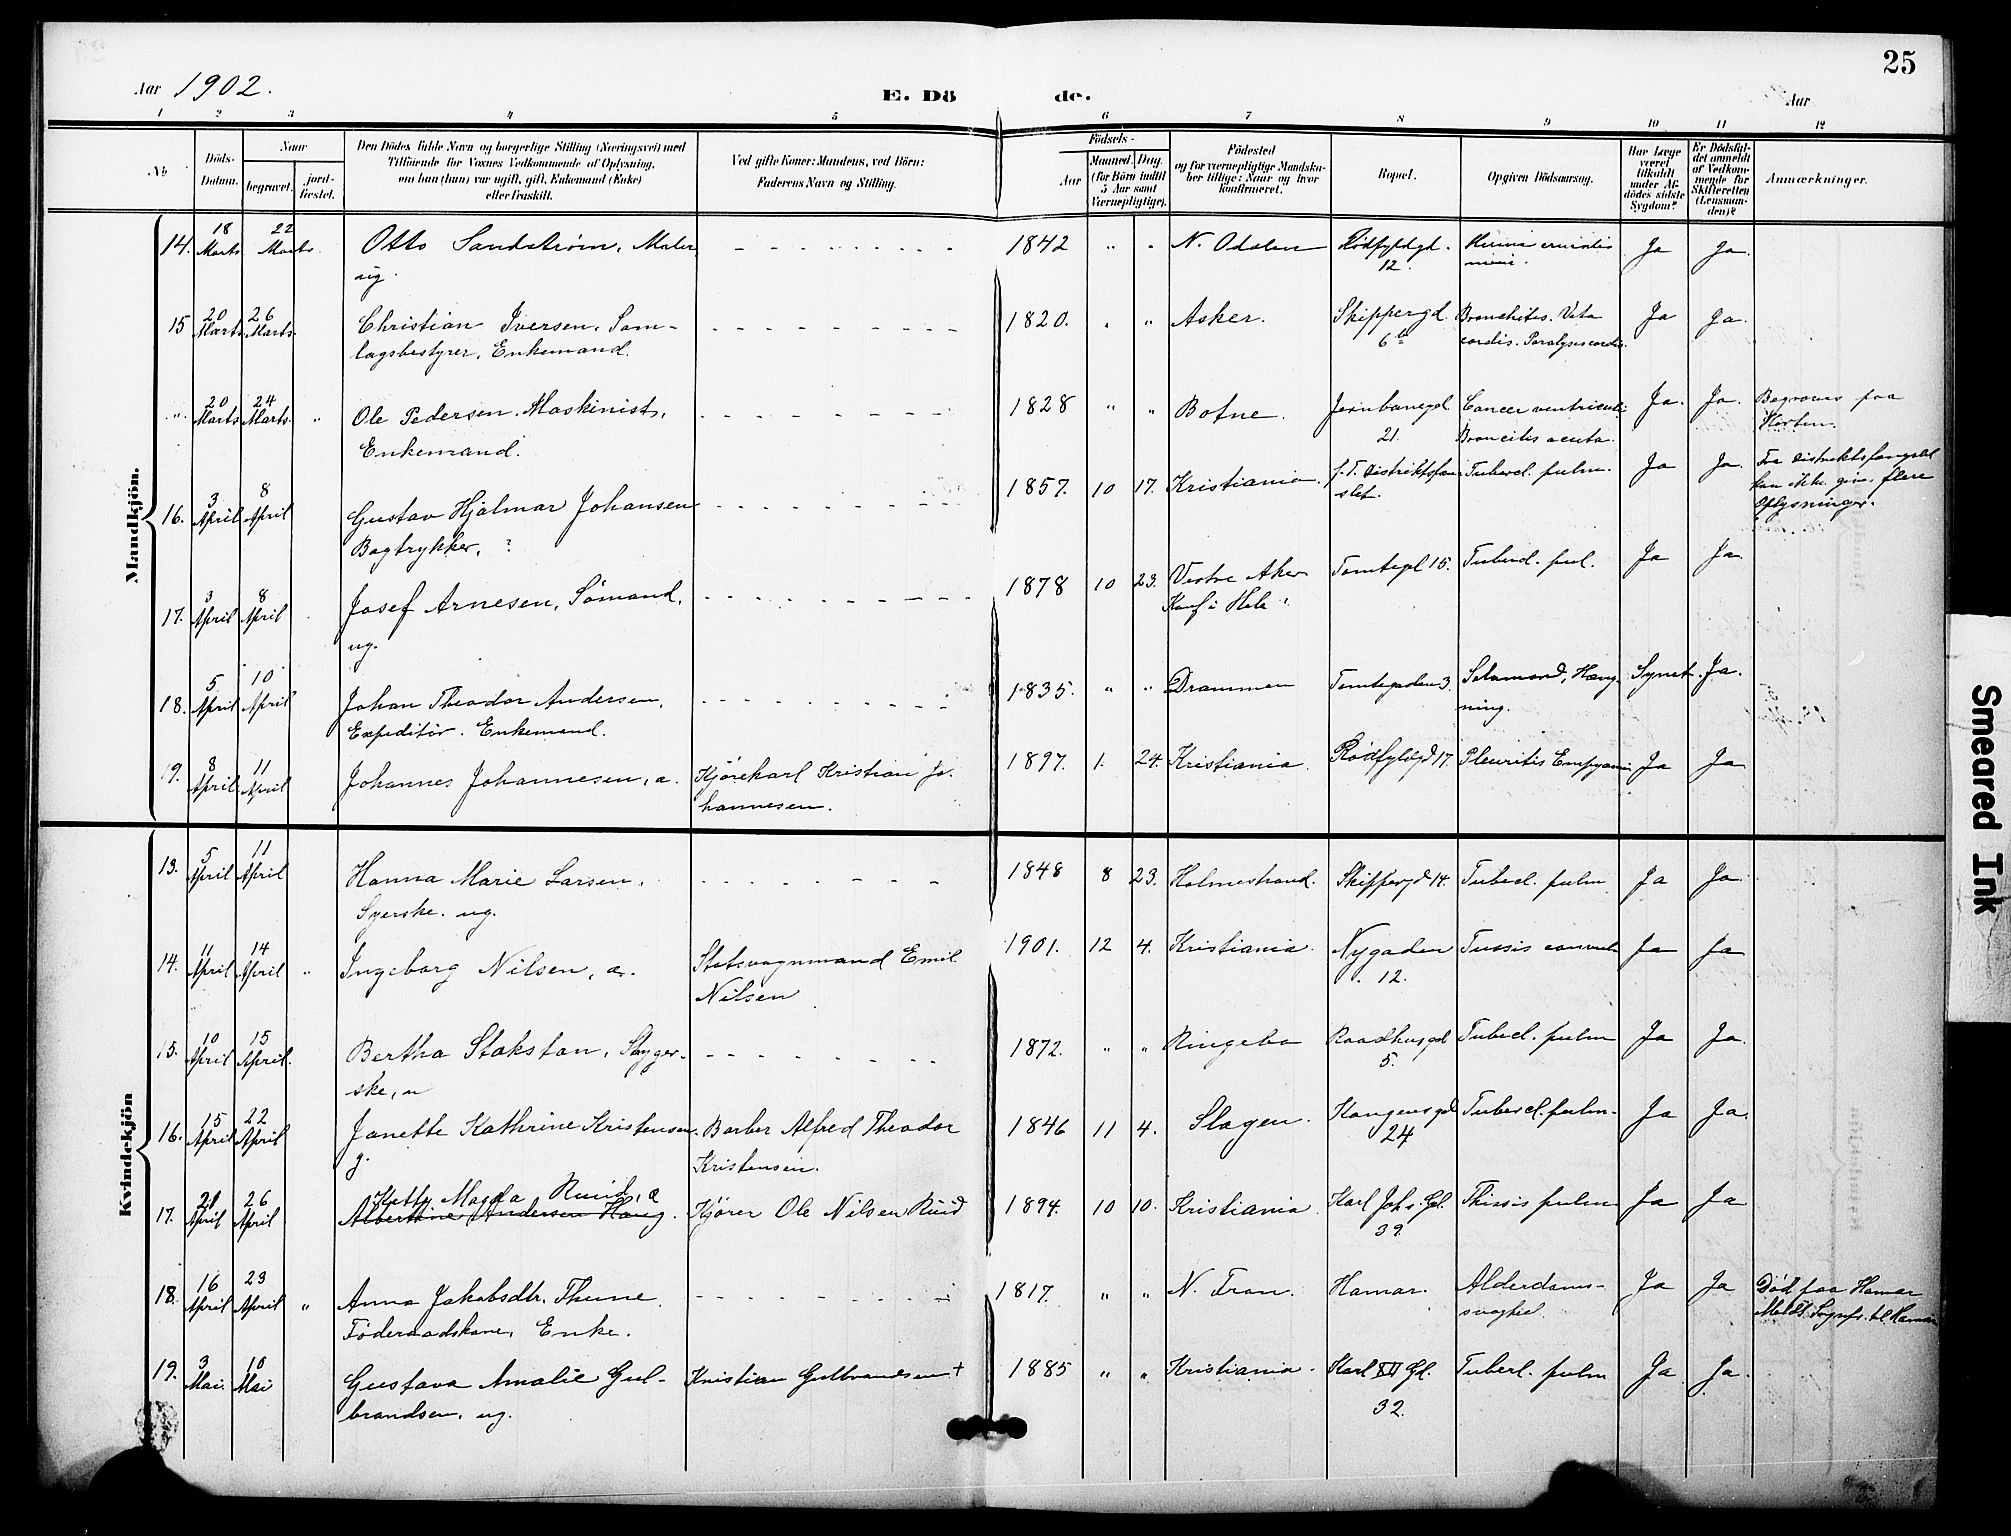 25
Aar 1902.
E. Dö de.
Aar
1 2 3 4 5 6 7 8 9 10 11 12
No
Döds-Datum.
Naar
begravet.
jord-fæstet.
Den Dödes fulde Navn og borgerlige Stilling (Næringsvei) med
Tilföiende for Voxnes Vedkommende af Oplysning,
om han (hun) var ugift, gift, Enkemand (Enke)
eller fraskilt.
Ved gifte Koner: Mandens, ved Börn:
Faderens Navn og Stilling.
Födsels-
Aar
Maaned. Dag.
(for Börn indtil
5 Aar samt
Værnepligtige).
Födested
og for værnepligtige Mandska-
ber tillige: Naar og hvor
konfirmeret.
Bopæl.
Opgiven Dödsaarsag.
Har Læge
været
tilkaldt
under Af-
dödes sidste
Sygdom?
Er Dödsfal-
det anmeldt
af Vedkom-
mende for
Skifteretten
(Lensman-
den)?
Anmærkninger.
Mandkjön.
14. 18 Marts 22 Marts. Otto Sandström, Maler, ug. 1842 " " N. Odalen Rödfyldgd. 12. Ja Ja.
15 20 Marts 26 Marts. Christian Iversen. Sam-
lagsbestyrer, Enkemand. 1820. " " Asker. Skippergd. 6b Bronchitis. Vita
cordis. Paralysis cordis. Ja Ja.
" 20 Marts 24 Marts. " Ole Pedersen, Maskinist,
Enkemand. 1828 " " Botne. Jernbanegd. 21. Cancer ventriculi
Broncitis acuta. Ja. Ja. Begraves paa
Horten.
16. 3 April 8 April Gustav Hjalmar Johansen
Bogtrykker, ? 1857. 10 17. Kristiania. f. T. Distriktsfæn-
slet. Tubercl. pulm. Ja Ja. Fra Distriktsfængslet
kan ikke give flere
Oplysninger.
17. 3 April 8 April Josef Arnesen, Sömand,
ug. 1878 10 23. Vestre Aker
Konf i Hole ? Tomtegd 15. Tubercl. pul. Ja Ja.
18. 5 April 10 April Johan Theodor Andersen,
Expeditör. Enkemand. 1835. " " Drammen Tomtegaden 3. Selvmord, Hæng-
ning. Synet. Ja.
19. 8 April. 11 April Johannes Johannesen, a. Kjörekarl Kristian Jo-
hannesen. 1897. 1. 24. Kristiania. Rödfyldgd 17. Pleuritis Empyæmi Ja Ja
Kvindekjön
13. 5 April 11 April Hanna Marie Larsen,
Syerske. ug. 1848 8 23. Holmestrand. Skippergd 14. Tubercl. pulm Ja Ja.
14. 11 April 14 April " Ingeborg Nilsen, a. Statsvognmand Emil
Nilsen 1901. 12 4. Kristiania. Nygaden
12. Tussis convuls Ja Ja
15. 10 April 15 April. Bertha Stakstan, Stryger-
ske, u 1872. " " Ringebo Raadhusgd
5. Tubercl. pulm Ja Ja.
16. 15 April 22 April Janette Kathrine Kristensen.
g. Barber Alfred Theodor
Kristensen. 1846 11 4. Slagen. Kongensgd
24 Tubercl. pulm. Ja Ja.
17. 21 April 26 April Kitty Magda Ruud, a
Albertine Andersen Haug. Kjörer Ole Nilsen Ruud 1894. 10 10. Kristiania. Karl Johs. Gd.
39. Thisis pulm Ja Ja
18. 16 April 23 April " Anna Jakobsdtr. Thune.
Föderaadskone, Enke. 1817. " " N. Fron. Hamar. Alderdoms-
svaghed. Ja Ja Död paa Hamar
Meldt Sognepr. til Hamar
19. 3 Mai. 10 Mai Gustava Amalie Gul-
brandsen, ug. Kristian Gulbrandsen + 1885 " " Kristiania. Karl XII Gd.
32. Tubercl. pulm Ja. Ja.
Smeared Ink